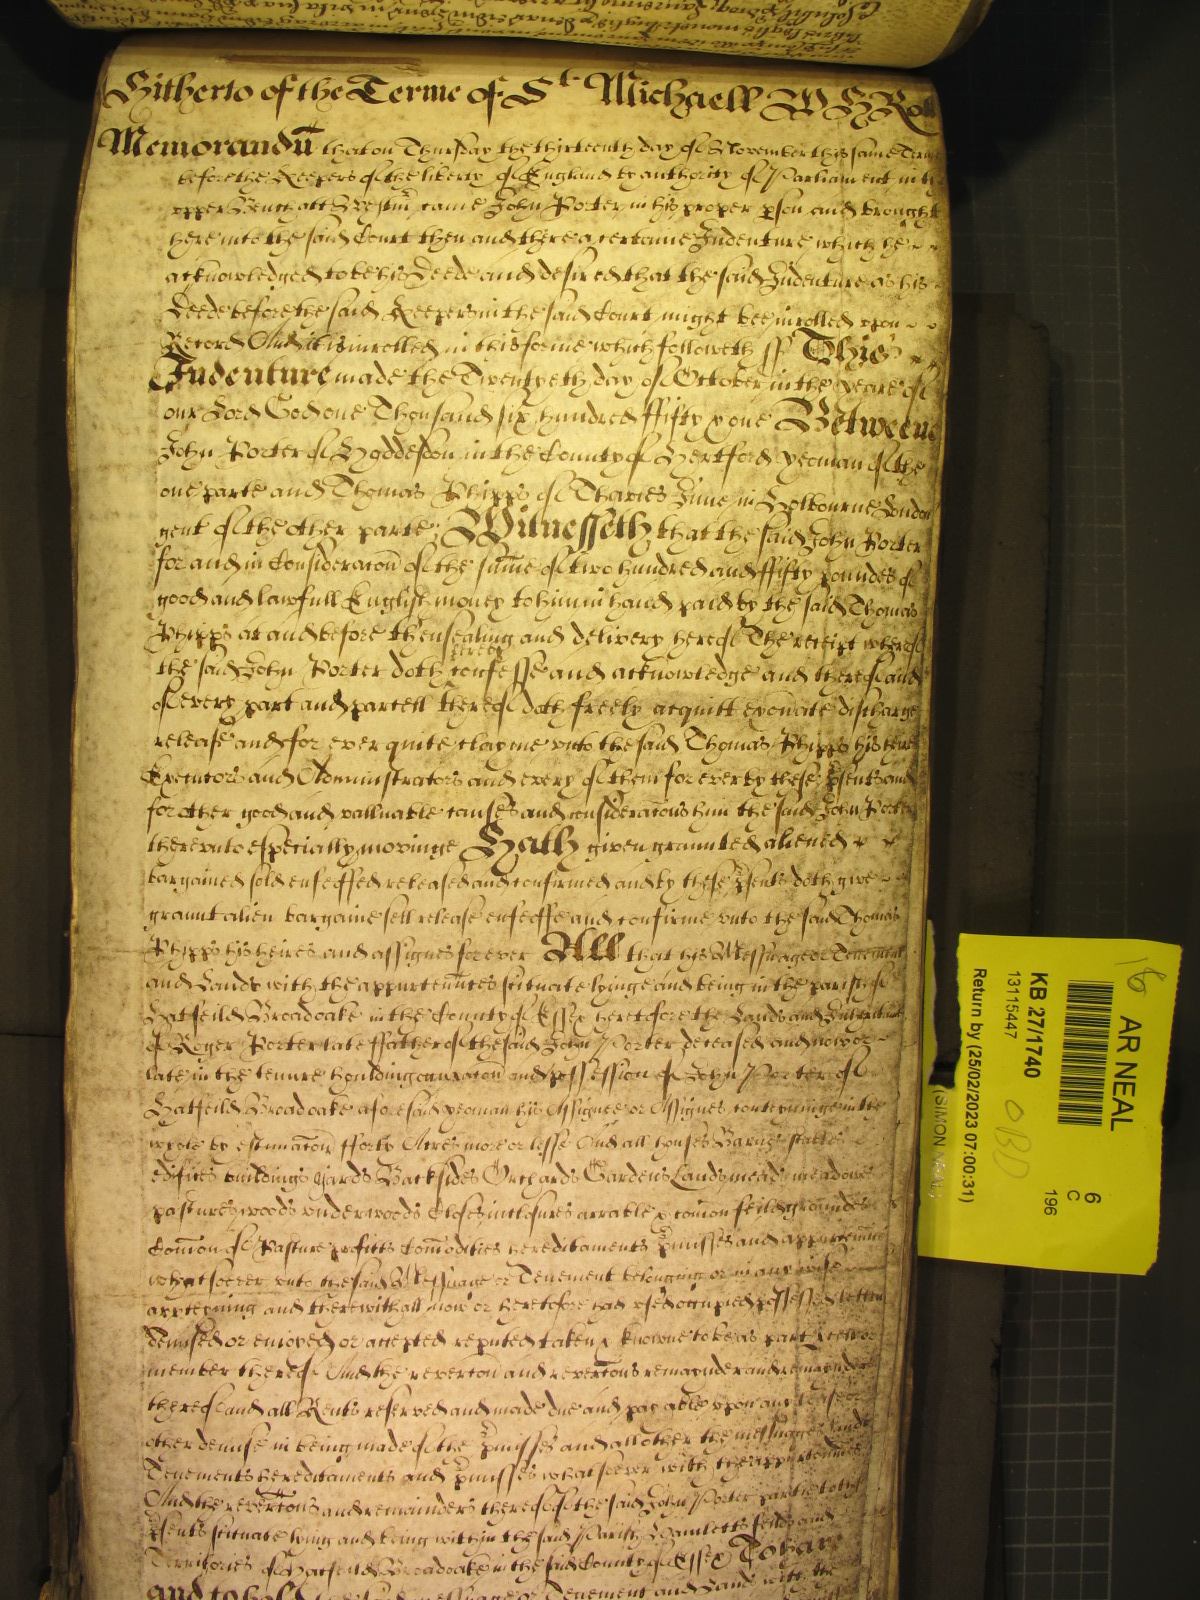 Hitherto of the Terme of St. Michaell W H Roll
Memorandū that on Thursday the thirteenth day of November this same Terme
before the Keepers of the liberty of England by authority of Parliament in the
upper Bench att Westm̄ came John Porter in his proper pson and brought
here into the said Court then and there a certaine Indenture which he
acknowledged to be his Deede and desired that the said Indenture as his
Deede before the said Keepers in the said Court might bee inrolled upon
Record And it is inrolled in this forme which followeth ss This
Indenture made the Twentyeth day of October in the yeare of
our Lord God one Thousand six hundred ffifty & one Betweene
John Porter of Hoddesdon in the County of Hertford yeoman of the
one parte and Thomas Phipps of Thavies Inne in Holbourne London
gent of the other parte Witnesseth that the said John Porter
for and in Consideraton̄ of the sum̄e of two hundred and ffifty poundes of
good and lawfull English money to him in hand paid by the said Thomas
Phipps at and before th'ensealing and delivery hereof The receipt whereof
the said John Porter doth confesse and acknowledge and thereof and
of every part and parcell thereof doth freely acquitt exonate discharge
release and for ever quite clayme unto the said Thomas Phipps his heires
Executors and Administrators and every of them for ever by these psents and
for other good and valluable causes and consideratons him the said John Porter
thereunto especially movinge Hath given graunted aliened
bargained sold enfeoffed released and confirmed and by these psents doth give
graunt alien bargaine sell release enfeoffe and confirme unto the said Thomas
Phipps his heires and assignes forever All that his Messuage or Tenement
and Lands with the appurtenn̄ces scituate lyinge and being in the parish of
Hatfeild Broadoake in the County of Essex heretofore the Lands and Inheritance
of Roger Porter late ffather of the said John Porter deceased and now or
late in the tenure houlding occupaton̄ and possession of John Porter of
Hatfeild Broadoake aforesaid yeoman his Assignee or Assignes conteyninge in the
whole by estimaton̄ fforty Acres more or lesse And all houses Barnes stables
edifices buildings yards Backsides Orchards Gardens Lands meads meadowes
pastures woods underwoods Closes inclosures arrable & com̄on feild groundes
Com̄on of Pasture profitts Com̄odities hereditaments pmisses and appurtenn̄ces
whatsoever unto the said Messuage or Tenement belonging or in any wise
apperteyning and therewithall now or heretofore had used occupied possessed letten
demised or enioyed or accepted reputed taken & knowne to be as part parcell or
member thereof And the reverton̄ and revertons remaynder and remaynders
thereof and all Rents reserved and made due and payable upon any lease or
other demise in being made of the pmisses and all other the messuages lands
Tenements hereditaments and pmisses whatsoever with the appurtenn̄ces
And the revertons and remainders thereof of the said John Porter partie to these
psents scituate lying and being within the said Parish Hamletts feilds and
Territories of Hatfeild Broadoake in the said County of Essex To have
and to hold the said messuage or Tenement and Lands with the
AR NEAL
6
C
196
KB 27/1740
13115447
Return by (25/02/2023 07:00:31)
(SIMON NEAL)
16